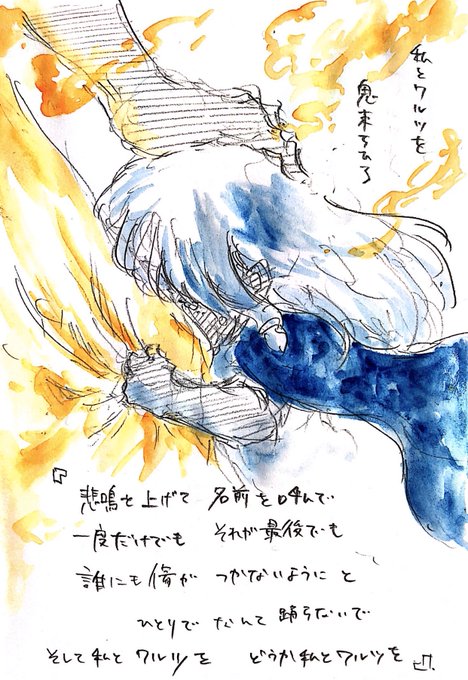 私とワルツを
鬼束ちひろ
『悲鳴を上げて 名前を呼んで
一度だけでも それが最後でも
誰にも傷が つかないようにと
ひとりでなんて 踊らないで
そして私と ワルツを どうか私とワルツを』